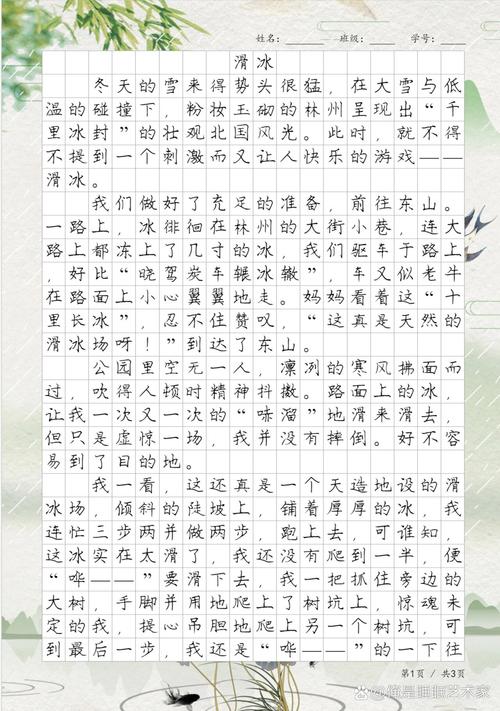 姓名：______ 班级：______ 学号：___
滑冰
冬天的雪来得势头很猛，在大雪与低
温的碰撞下，粉妆玉砌的林州呈现出“千
里冰封”的壮观北国风光。此时，就不得
不提到一个刺激而又让人快乐的游戏——
滑冰。
我们做好了充足的准备，前往东山。
一路上，冰徘徊在林州的大街小巷，连大
路上都冻上了几寸的冰，我们驱车于路上
，好比“晓驾炭车辗冰辙”，车又似老牛
在路面上小心翼翼地走。妈妈看着这“十
里长冰”，忍不住赞叹，“这真是天然的
滑冰场呀！”到达了东山。
公园里空无一人，凛冽的寒风拂面而
过，吹得人顿时精神抖擞。路面上的冰，
让我一次又一次的“哧溜”地滑来滑去，
但只是虚惊一场，我并没有摔倒。好不容
易到了目的地。
我一看，这还真是一个天造地设的滑
冰场，倾斜的陡坡上，铺着厚厚的冰，我
连忙三步两并做两步，跑上去，可谁知，
这冰实在太滑了，我还没有爬到一半，便
“哗——”要滑下去，我一把抓住旁边的
大树，手脚并用地爬上了树坑上，惊魂未
定的我，提心吊胆地爬上另一个树坑，可
到最后一步，我还是“哗——”的一下往
第1页 / 共3页